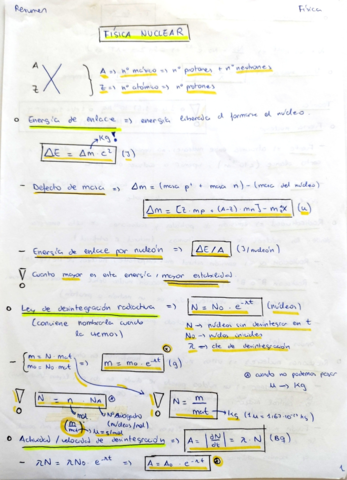 Resumen
Física
FÍSICA NUCLEAR
A
Z
X
A => nº másico => nº protones + nº neutrones
Z => nº atómico => nº protones
o Energía de enlace => energía liberada al formarse el núcleo.
ΔE = Δm·c² (J)
kg!
- Defecto de masa => Δm = (masa p⁺ + masa n) - (masa del núcleo)
Δm = [Z·mp + (A-Z)·mn] - m (u)
- Energía de enlace por nucleón => ΔE/A (J/nucleón)
Cuanto mayor es esta energía, mayor estabilidad
o Ley de desintegración radiactiva => N = N₀·e^-λt (núcleos)
(conviene nombrarla cuando
la usemos)
N → núcleos sin desintegrar en t
N₀ → núcleos iniciales
λ → cte de desintegración
- { m = N·mat
m₀ = N₀·mat => m = m₀·e^-λt (g)
cuando no podamos pasar
u → kg
N = n · NA
mol
nº Avogadro
(núcleos/mol)
N = m/mat
kg (1u = 1'67·10⁻²⁷ kg)
o Actividad / velocidad de desintegración => A = |dN/dt| = λ·N (Bq)
- λN = λN₀ e^-λt => A = A₀·e^-λt
1